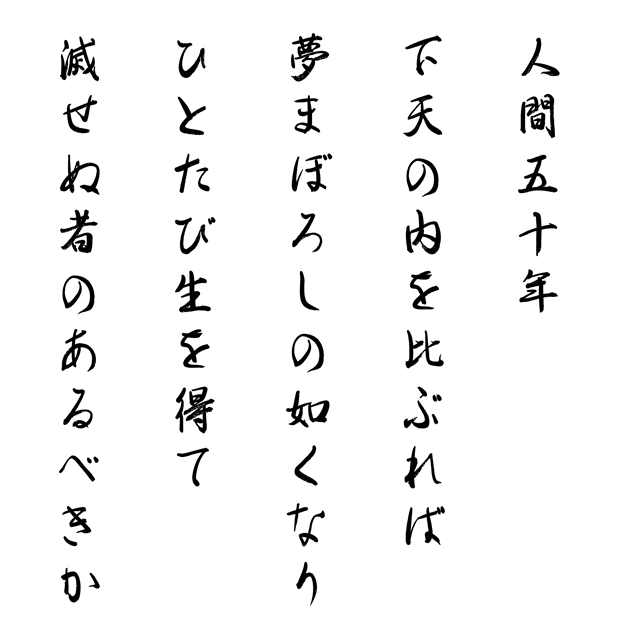 人間五十年
下天の内を比ぶれば
夢まぼろしの如くなり
ひとたび生を得て
滅せぬ者のあるべきか